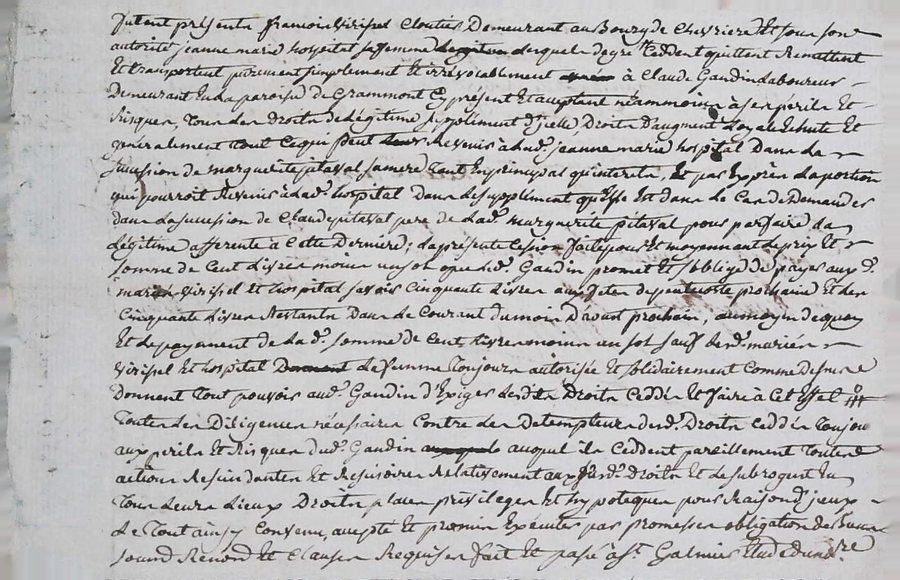 furent présents francois virissel Cloutier Demeurant au Bourg de Chevriere Et sous son
autorité jeanne marie hospital sa femme lesquels de gré Ceddent quittent Remettent
Et transportent purement simplement Et irrévocablement à Claude Gaudin Laboureur
Demeurant En La paroisse de Grammont Cy présent Et acceptant néammoins à ses périls Et
Risques, Tous Les Droits de Légitime supplément d'icelle, Droits D'augment Loyale Echute Et
généralement tout Ce qui peut Revenir à Lad.e jeanne marie hospital Dans La
succession de marguerite pitaval sa mere tant En principal qu'interets, Et par Exprès La portion
qui pourroit Revenir à Lad.e hospital Dans Le supplément qu'Elle Est dans Le Cas de Demander
dans La succession de Claude pitaval pere de Lad.e marguerite pitaval pour parfaire sa
Légitime afferente à Cette Derniere; La présente Cession faite pour Et moyennant Le prix Et
somme de Cent Livres moins un sol que Led.t Gaudin promet Et s'oblige De payer aux d.ts
mariés virissel Et hospital savoir Cinquante Livres aux fetes de pentecoste prochaine Et Les
Cinquante Livres Restants Dans Le Courant du mois D'aoust prochain, au moyen de quoy
Et du payement de Lad.e somme de Cent Livres moins un sol Lesd.ts mariés
virissel Et hospital La femme Toujours autorisée Et solidairement Comme Dessus
Donnent Tout pouvoir aud.t Gaudin d'Exiger Lesdits Droits Ceddés Et faire à Cet Effet
Toutes Les Diligences nécessaires Contre Les Detempteurs desd.ts Droits Ceddés Toujours
aux perils Et Risques dud.t Gaudin auquel ils Ceddent pareillement Toutes
actions Rescindantes Et Rescisoires Relativement auxd.ts Droits Et Le subrogent En
Tous Leurs Lieux Droits places privileges Et hypoteques pour Raison d'iceux
Le Tout ainsy Convenu, accepté Et promis Exécuter par promesses obligation de Biens
soumd Renond Et Clauses Requises fait Et passé à St. Galmier Etude dud.t n.re